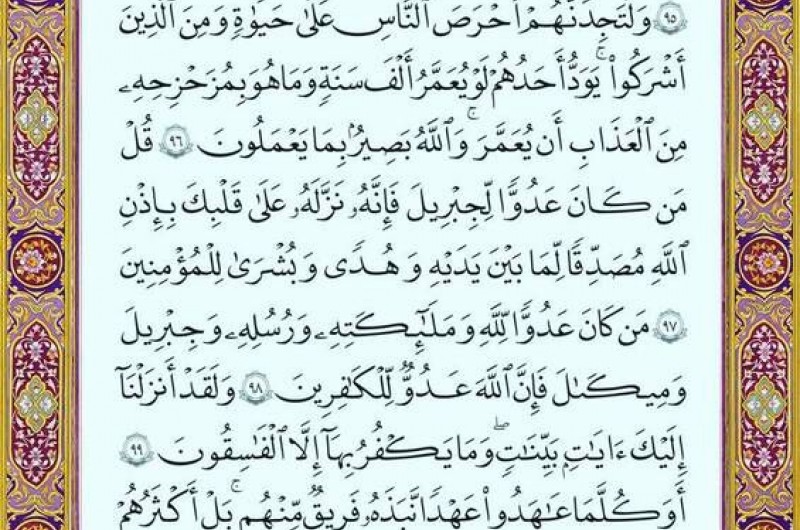 ٩٥ وَلَتَجِدَنَّهُمْ أَحْرَصَ ٱلنَّاسِ عَلَىٰ حَيَوٰةٍ وَمِنَ ٱلَّذِينَ
أَشْرَكُوا۟ ۚ يَوَدُّ أَحَدُهُمْ لَوْ يُعَمَّرُ أَلْفَ سَنَةٍ وَمَا هُوَ بِمُزَحْزِحِهِۦ
مِنَ ٱلْعَذَابِ أَن يُعَمَّرَ ۗ وَٱللَّهُ بَصِيرٌۢ بِمَا يَعْمَلُونَ ٩٦ قُلْ
مَن كَانَ عَدُوًّا لِّجِبْرِيلَ فَإِنَّهُۥ نَزَّلَهُۥ عَلَىٰ قَلْبِكَ بِإِذْنِ
ٱللَّهِ مُصَدِّقًا لِّمَا بَيْنَ يَدَيْهِ وَهُدًى وَبُشْرَىٰ لِلْمُؤْمِنِينَ
٩٧ مَن كَانَ عَدُوًّا لِّلَّهِ وَمَلَـٰٓئِكَتِهِۦ وَرُسُلِهِۦ وَجِبْرِيلَ
وَمِيكَىٰلَ فَإِنَّ ٱللَّهَ عَدُوٌّ لِّلْكَـٰفِرِينَ ٩٨ وَلَقَدْ أَنزَلْنَآ
إِلَيْكَ ءَايَـٰتٍۭ بَيِّنَـٰتٍ ۖ وَمَا يَكْفُرُ بِهَآ إِلَّا ٱلْفَـٰسِقُونَ ٩٩
أَوَكُلَّمَا عَـٰهَدُوا۟ عَهْدًا نَّبَذَهُۥ فَرِيقٌ مِّنْهُم ۚ بَلْ أَكْثَرُهُمْ